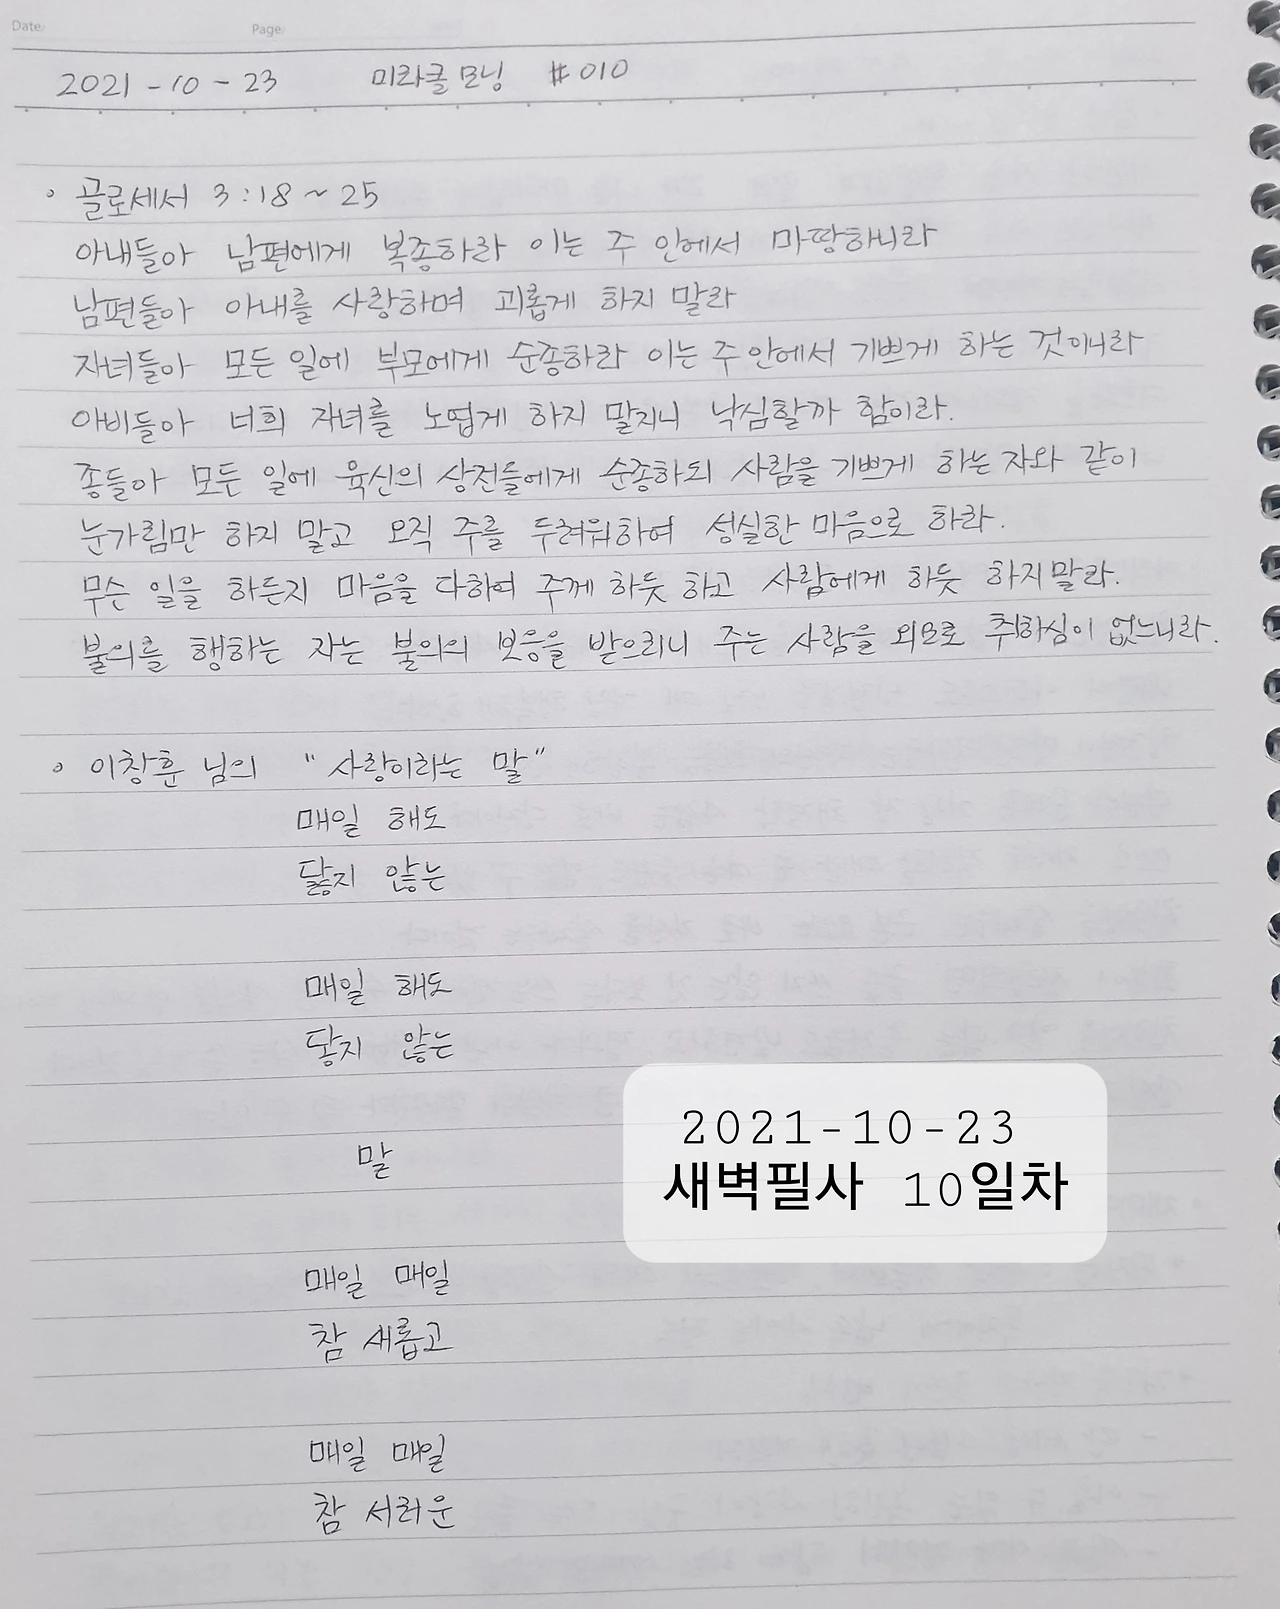 Date. Page.
2021 - 10 - 23 미라클 모닝 #010
◦ 골로세서 3:18 ~ 25
아내들아 남편에게 복종하라 이는 주 안에서 마땅하니라
남편들아 아내를 사랑하며 괴롭게 하지 말라
자녀들아 모든 일에 부모에게 순종하라 이는 주 안에서 기쁘게 하는 것이니라
아비들아 너희 자녀를 노엽게 하지 말지니 낙심할까 함이라.
종들아 모든 일에 육신의 상전들에게 순종하되 사람을 기쁘게 하는 자와 같이
눈가림만 하지 말고 오직 주를 두려워하여 성실한 마음으로 하라.
무슨 일을 하든지 마음을 다하여 주께 하듯 하고 사람에게 하듯 하지 말라.
불의를 행하는 자는 불의의 보응을 받으리니 주는 사람을 외모로 취하심이 없느니라.
◦ 이창훈 님의 "사랑이라는 말"
매일 해도
닳지 않는
매일 해도
닿지 않는
말
매일 매일
참 새롭고
매일 매일
참 서러운
2021-10-23
새벽필사 10일차